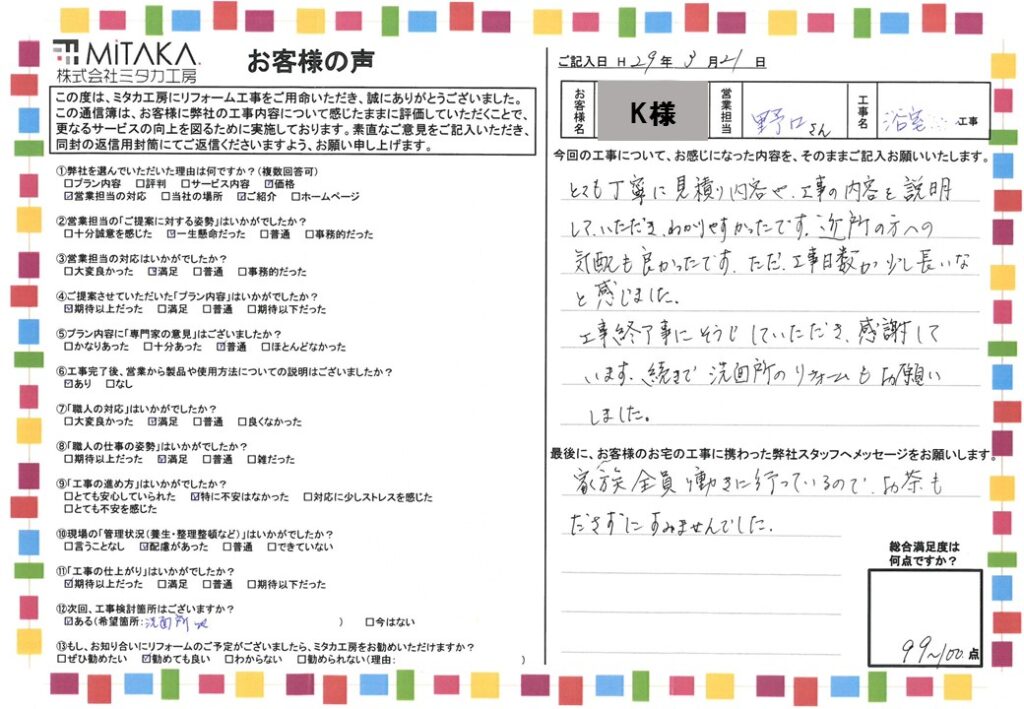 MiTAKA.
株式会社ミタカ工房
お客様の声
この度は、ミタカ工房にリフォーム工事をご用命いただき、誠にありがとうございました。
この通信簿は、お客様に弊社の工事内容について感じたままに評価していただくことで、
更なるサービスの向上を図るために実施しております。素直なご意見をご記入いただき、
同封の返信用封筒にてご返信くださいますよう、お願い申し上げます。
①弊社を選んでいただいた理由は何ですか？(複数回答可)
□プラン内容 □評判 □サービス内容 ☑価格
☑営業担当の対応 □当社の場所 ☑ご紹介 □ホームページ
②営業担当の「ご提案に対する姿勢」はいかがでしたか？
□十分誠意を感じた ☑一生懸命だった □普通 □事務的だった
③営業担当の対応はいかがでしたか？
□大変良かった ☑満足 □普通 □事務的だった
④ご提案させていただいた「プラン内容」はいかがでしたか？
☑期待以上だった □満足 □普通 □期待以下だった
⑤プラン内容に「専門家の意見」はございましたか？
□かなりあった □十分あった ☑普通 □ほとんどなかった
⑥工事完了後、営業から製品や使用方法についての説明はございましたか？
☑あり □なし
⑦「職人の対応」はいかがでしたか？
□大変良かった ☑満足 □普通 □良くなかった
⑧「職人の仕事の姿勢」はいかがでしたか？
□期待以上だった ☑満足 □普通 □雑だった
⑨「工事の進め方」はいかがでしたか？
□とても安心していられた ☑特に不安はなかった □対応に少しストレスを感じた
□とても不安を感じた
⑩現場の「管理状況(養生・整理整頓など)」はいかがでしたか？
□言うことなし ☑配慮があった □普通 □できていない
⑪「工事の仕上がり」はいかがでしたか？
☑期待以上だった □満足 □普通 □期待以下だった
⑫次回、工事検討箇所はございますか？
☑ある(希望箇所:洗面所 ) □今はない
⑬もし、お知り合いにリフォームのご予定がございましたら、ミタカ工房をお勧めいただけますか？
□ぜひ勧めたい ☑勧めても良い □わからない □勧められない(理由: )
ご記入日 H 29年 3月21日
お客様名 K様 営業担当 野口さん 工事名 浴室 工事
今回の工事について、お感じになった内容を、そのままご記入お願いいたします。
とても丁寧に見積り内容や、工事の内容を説明
して、いただき、わかりやすかったです。近所の方への
気配も良かったです。ただ、工事日数が少し長いな
と感じました。
工事終了事にそうじしていただき、感謝して
います。続きで洗面所のリフォームもお願い
しました。
最後に、お客様のお宅の工事に携わった弊社スタッフへメッセージをお願いします。
家族全員働きに行っているので、お茶も
ださずにすみませんでした。
総合満足度は
何点ですか？
99~100点